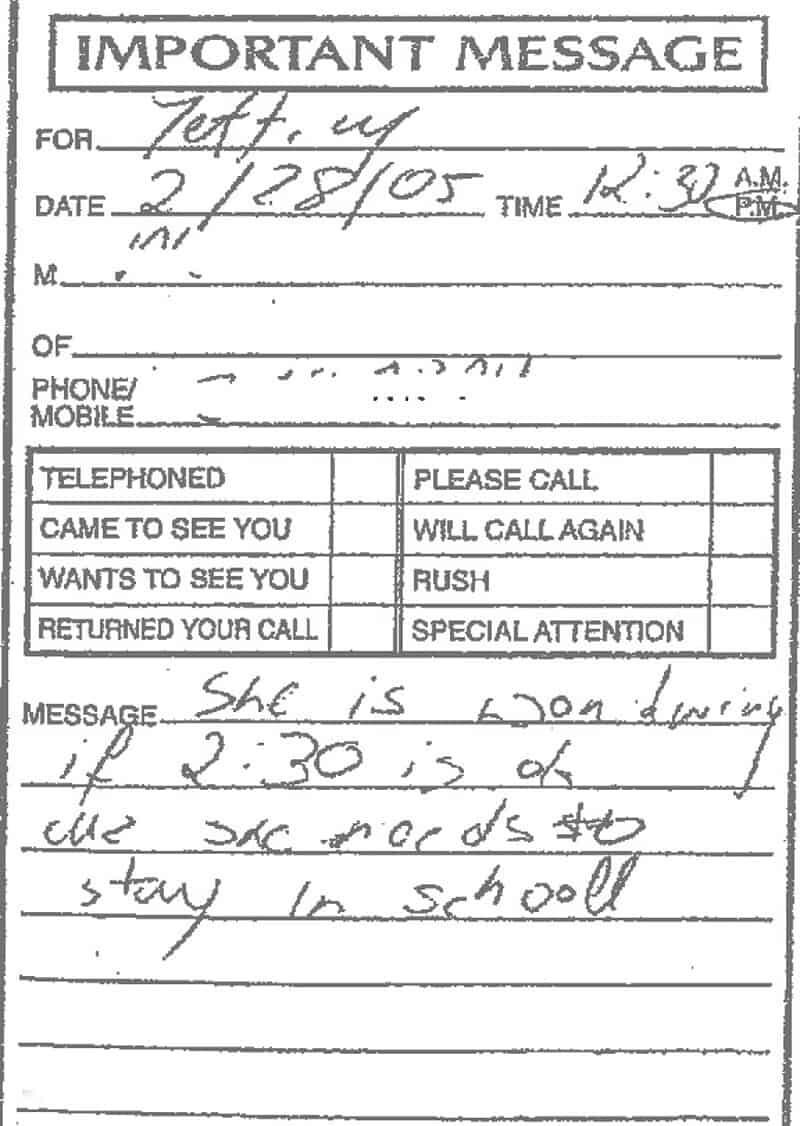 IMPORTANT MESSAGE
FOR Jeff.
DATE 2/28/05 TIME 12:30 A.M.
P.M.
M
OF
PHONE/
MOBILE
TELEPHONED PLEASE CALL
CAME TO SEE YOU WILL CALL AGAIN
WANTS TO SEE YOU RUSH
RETURNED YOUR CALL SPECIAL ATTENTION
MESSAGE She is wondering
if 2:30 is ok
she needs to
stay in school